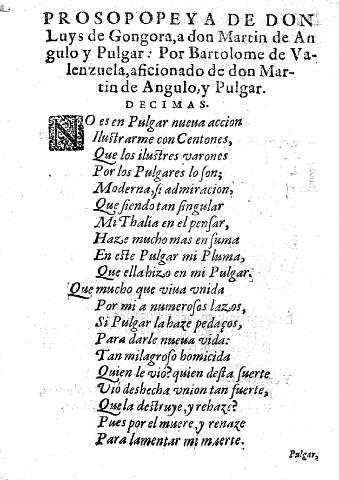 PROSOPOPEYA DE DON
Luys de Gongora, a don Martin de An
gulo y Pulgar: Por Bartolome de Va-
lenzuela, aficionado de don Mar-
tin de Angulo, y Pulgar.
DECIMAS.
NO es en Pulgar nueua accion
Ilustrarme con Centones,
Que los ilustres varones
Por los Pulgares lo son;
Moderna, si admiracion,
Que siendo tan singular
Mi Thalia en el pensar,
Haze mucho mas en suma
En este Pulgar mi Pluma,
Que ella hizo en mi Pulgar.
Que mucho que viua vnida
Por mi a numerosos lazos,
Si Pulgar la haze pedaços,
Para darle nueua vida:
Tan milagroso homicida
Quien le vio? quien desta suerte
Vio deshecha vnion tan fuerte,
Que la destruye, y rehaze?
Pues por el muere, y renaze
Para lamentar mi muerte.
Pulgar,